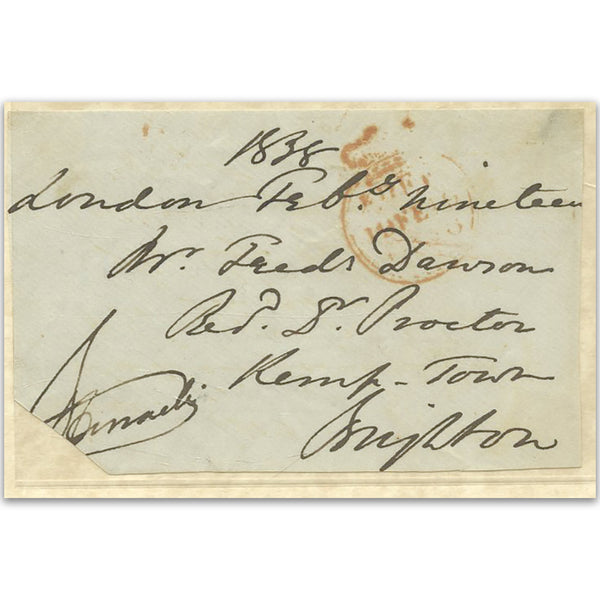 1838
London Feby. nineteen
Mr. Fredk Dawson
Revd. Dr. Proctor
Kemp-Town
Brighton